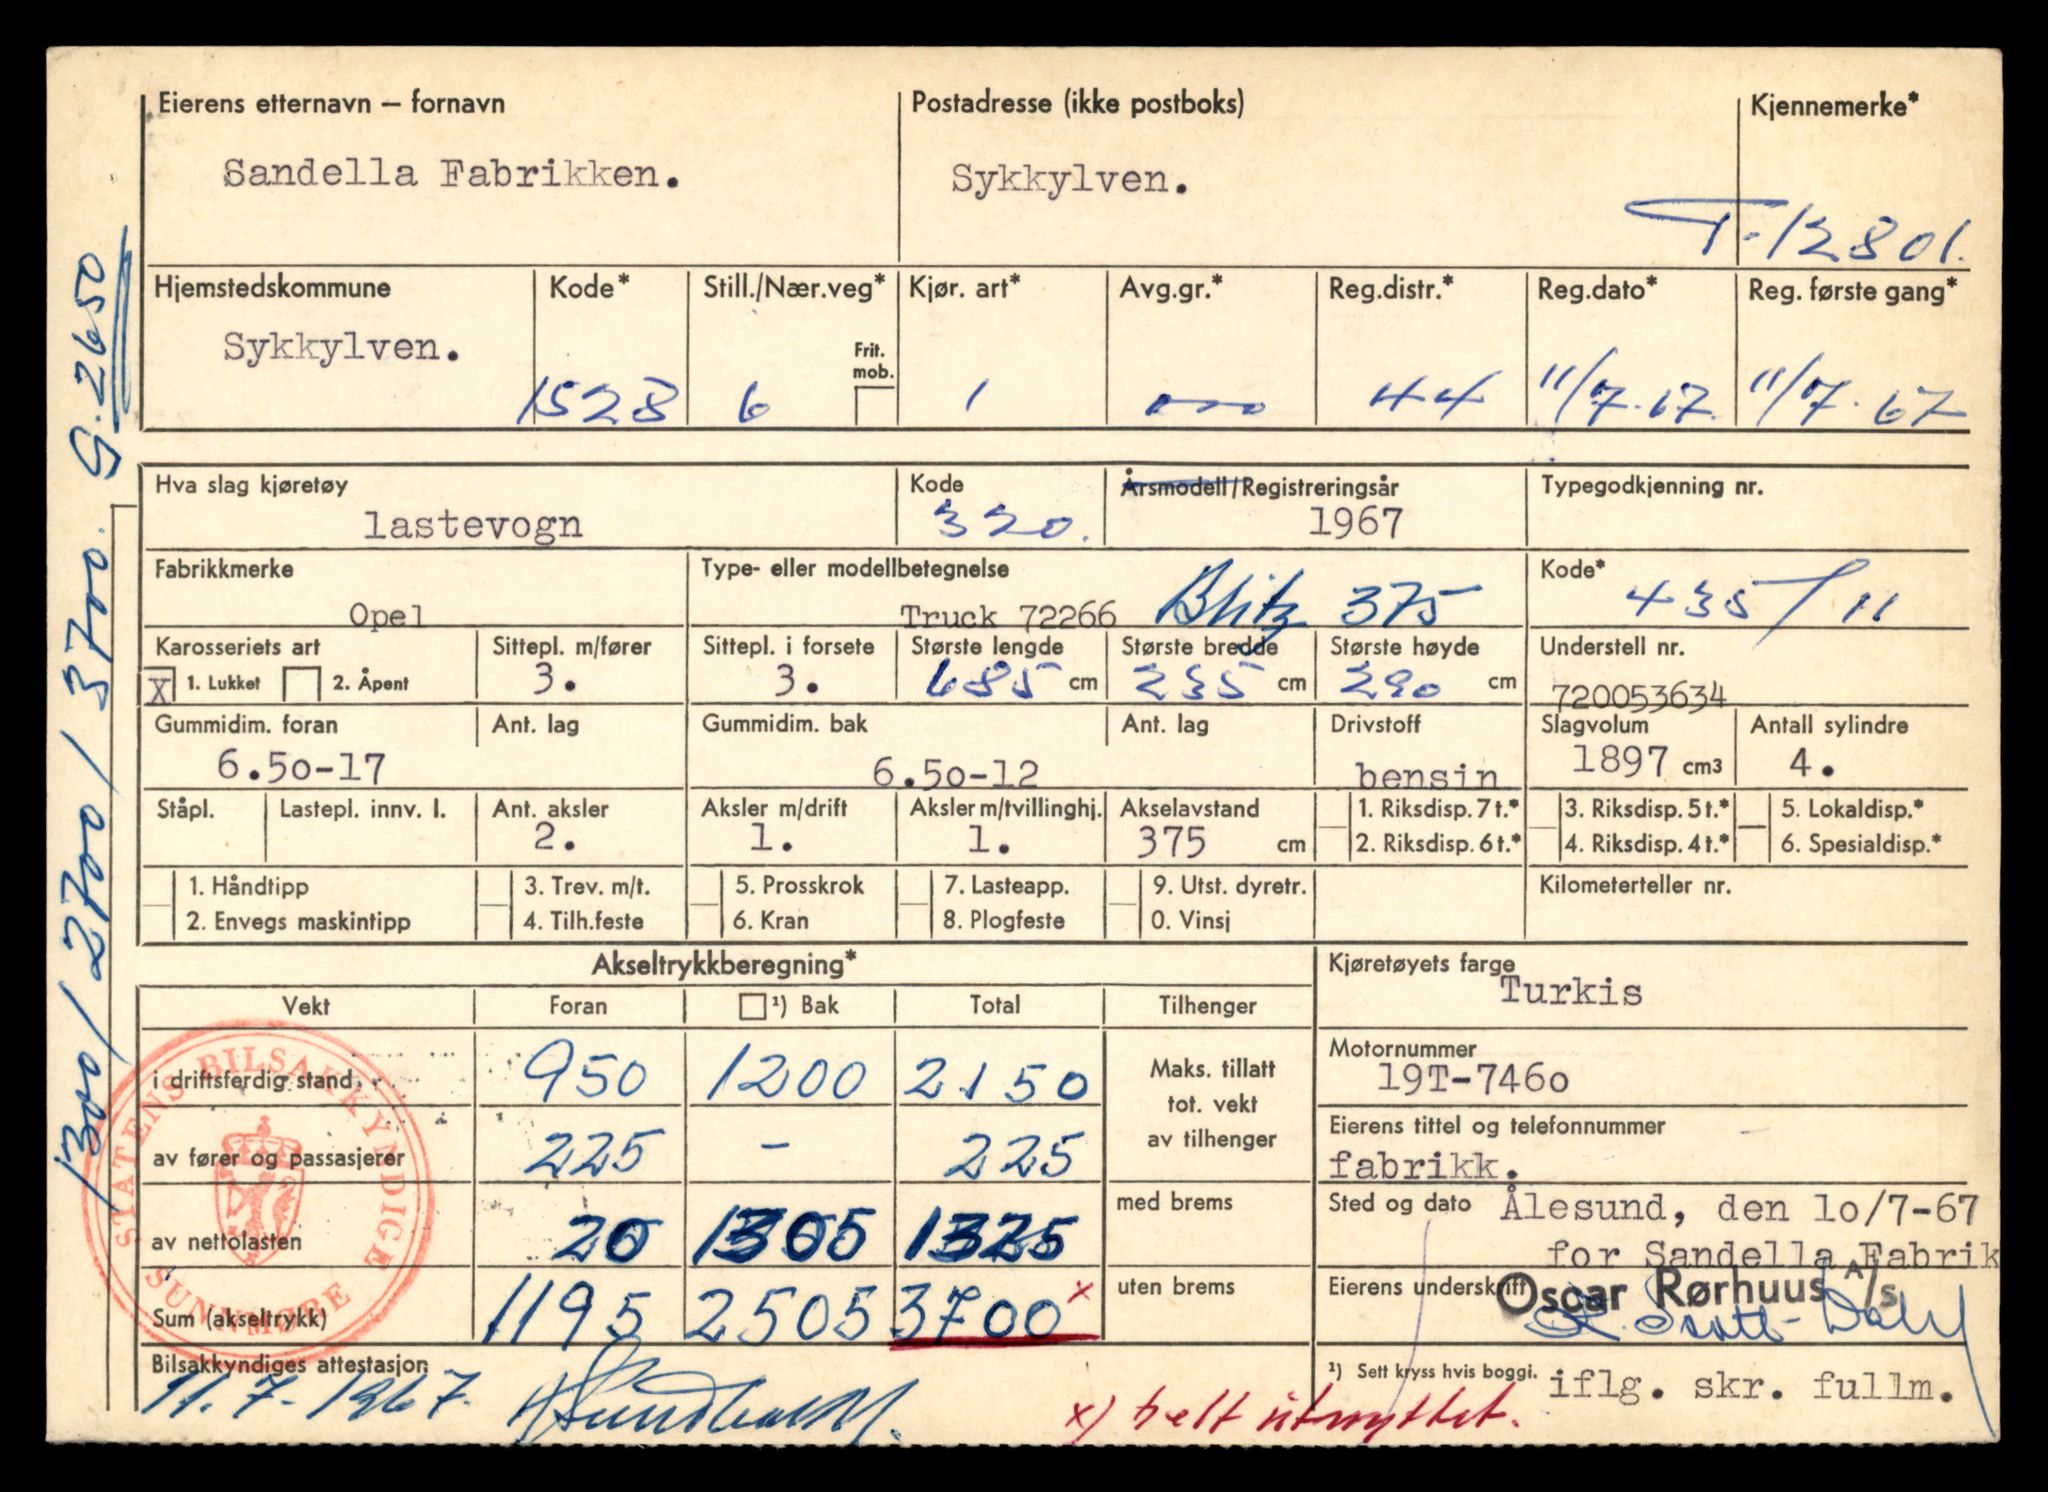 Eierens etternavn — fornavn Postadresse (ikke postboks) Kjennemerke*
Sandella Fabrikken. Sykkylven.
T-12801.
Hjemstedskommune Kode* Still./Nær.veg* Kjør. art* Avg.gr.* Reg.distr.* Reg.dato* Reg. første gang*
Sykkylven. Frit. mob.
1528 6 1 44 11/7.67. 11/7.67
Hva slag kjøretøy Kode Årsmodell/Registreringsår Typegodkjenning nr.
lastevogn 320. 1967
Fabrikkmerke Type- eller modellbetegnelse Kode*
Opel Truck 72266 Blitz 375 435/11
Karosseriets art Sittepl. m/fører Sittepl. i forsete Største lengde Største bredde Største høyde Understell nr.
X 1. Lukket 2. Åpent 3. 3. 685 cm 235 cm 290 cm 720053634
Gummidim. foran Ant. lag Gummidim. bak Ant. lag Drivstoff Slagvolum Antall sylindre
6.50-17 6.50-12 bensin 1897 cm3 4.
Ståpl. Lastepl. innv. l. Ant. aksler Aksler m/drift Aksler m/tvillinghj. Akselavstand 1. Riksdisp. 7 t.* 3. Riksdisp. 5 t.* 5. Lokaldisp.*
2. 1. 1. 375 cm 2. Riksdisp. 6 t.* 4. Riksdisp. 4 t.* 6. Spesialdisp.*
1. Håndtipp 3. Trev. m/t. 5. Prosskrok 7. Lasteapp. 9. Utst. dyretr. Kilometerteller nr.
2. Envegs maskintipp 4. Tilh.feste 6. Kran 8. Plogfeste 0. Vinsj
Akseltrykkberegning* Kjøretøyets farge
Turkis
Vekt Foran ¹) Bak Total Tilhenger
Motornummer
i driftsferdig stand 950 1200 2150 Maks. tillatt tot. vekt av tilhenger
19T-7460
Eierens tittel og telefonnummer
av fører og passasjerer 225 - 225
fabrikk.
med brems Sted og dato Ålesund, den 10/7-67
av nettolasten 20 1305 1325
for Sandella Fabrik
uten brems Eierens underskrift Oscar Rørhuus A/S
Sum (akseltrykk) 1195 2505 3700 x
Bilsakkyndiges attestasjon ¹) Sett kryss hvis boggi. iflg. skr. fullm.
11.7-1967.
x) helt utnyttet.
STATENS BILSAKKYNDIGE SUNNMØRE
1300/2700/3700. G.2650